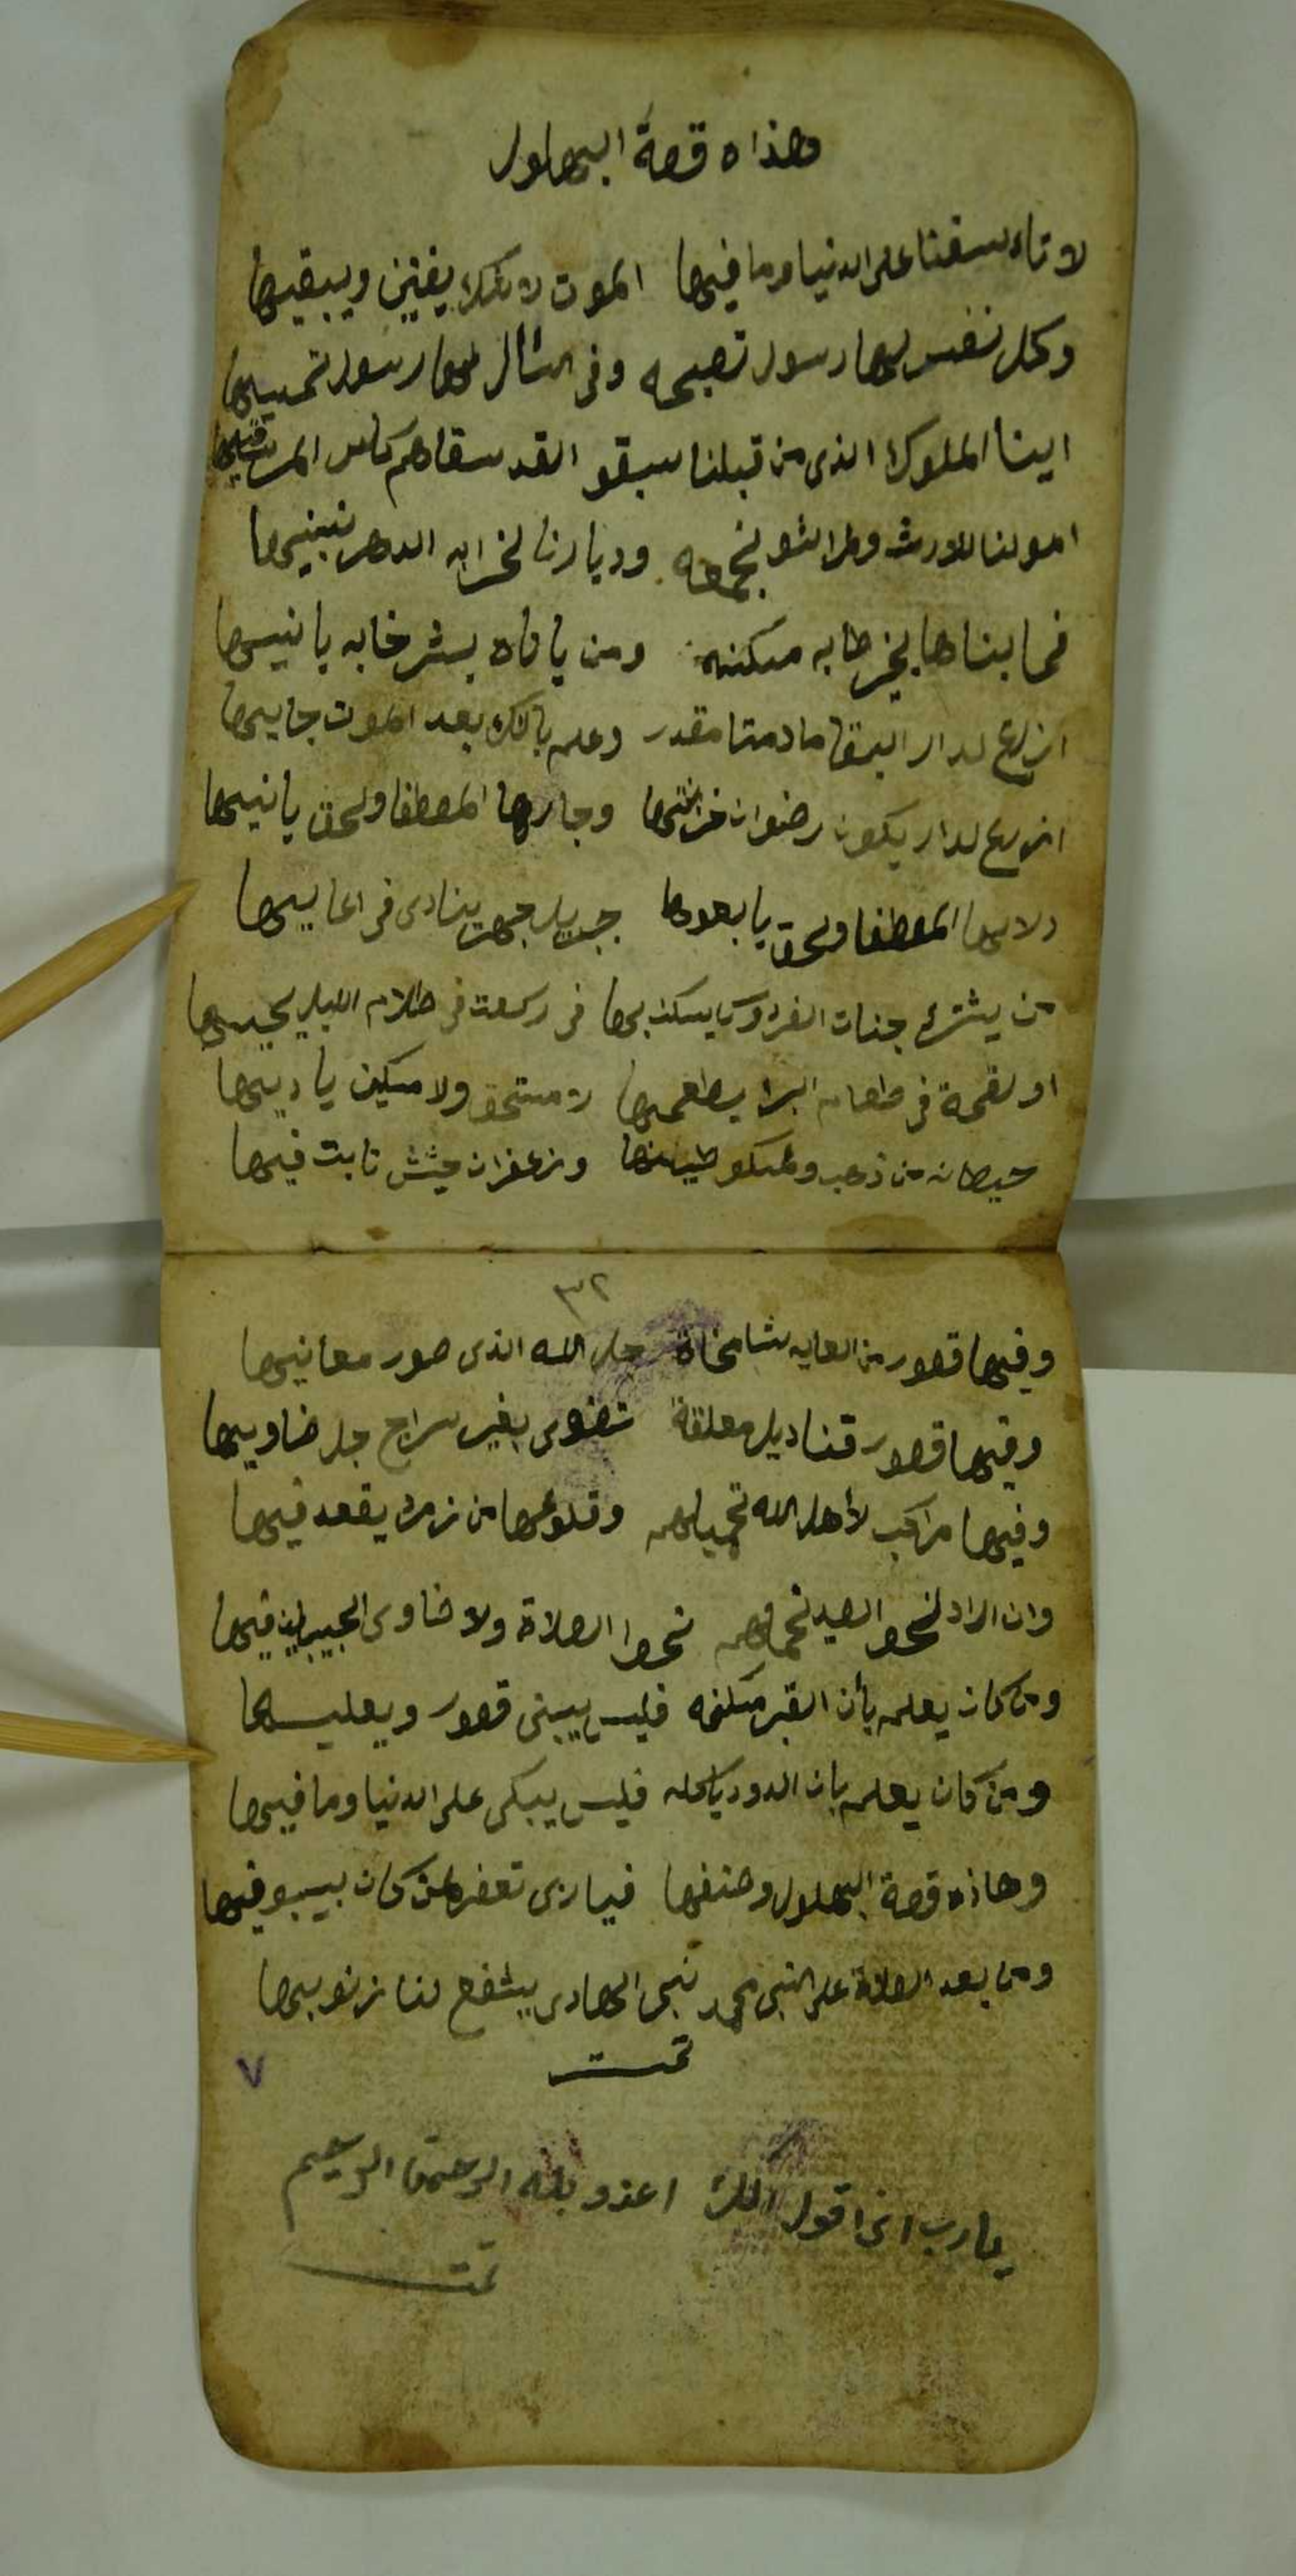 وهذاه قصة البهلول
لا تاه سفنا على الدنيا وما فيها الموت لا يفنين ويبقيها
وكل نفس لها رسول تصبحه وفى لها رسول تمسيها
اينا الملوك الذى من قبلنا سبقو القد سقاهم كاس المر
امولنا للورث وطراشو نجمعه وديارنا لخرابه الدهر نبنيها
فما بناها بخير طابه مسكنه ومن بشر خابه يا نيسها
ازرع لدار البقا ما دمتا مقدر وعلم بانك بعد الموت جاييها
ازرع لدار يكون رضوان خزانتها وجارها المصطفا ولحق يانيها
دلالها المصطفا ولحق يابعوها جبريل ينادى فى
من يشترى جنات الفردوس يسكن بها فى ركعت فى ظلام الليل يحييها
او لقمة فى طعام البرا يطعميها لا مستحق ولا مسكين ياديها
حيطانه من ذهب ولمسكو طينها وزعفران حشش نابت فيها
٣٢
وفيها قصور من العايه شامخاة جل الله الذى صور معانيها
وفيها قصور قناديل معلقة تضوى بغير سراج جل ضاوييها
وفيها مراكب لأهل الله تحميلهم وقلوعها من زمرد يقعد فيها
وان الراد لنحو الصيد نحو الصلاة ولا ضاوى الحبيب فيها
ومن كان يعلم بأن القبر مسكنه فليس يبنى قصور ويعليها
ومن كان يعلم بان الدود ياكله فليس يبكى على الدنيا وما فيها
وهاذه قصة البهلول وصنفها فيا ربى تغفر لمن كان بيبو فيها
ومن بعد الصلاة على النبى محمد نبى الهادى يشفع لنا زنوبيها
تمت
٧
يا رب انى اقول اللك اعذو بله الرحمن الرحيم
تمت